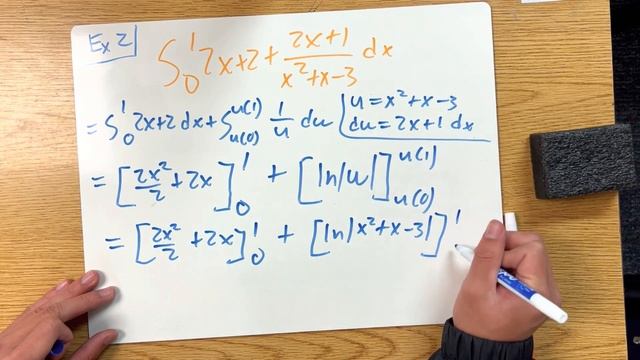 Ex 2
∫₀¹ 2x+2 + (2x+1)/(x²+x-3) dx
= ∫₀¹ 2x+2 dx + ∫_{u(0)}^{u(1)} 1/u du | u = x²+x-3
du = 2x+1 dx
= [2x²/2 + 2x]₀¹ + [ln|u|]_{u(0)}^{u(1)}
= [2x²/2 + 2x]₀¹ + [ln|x²+x-3|]¹